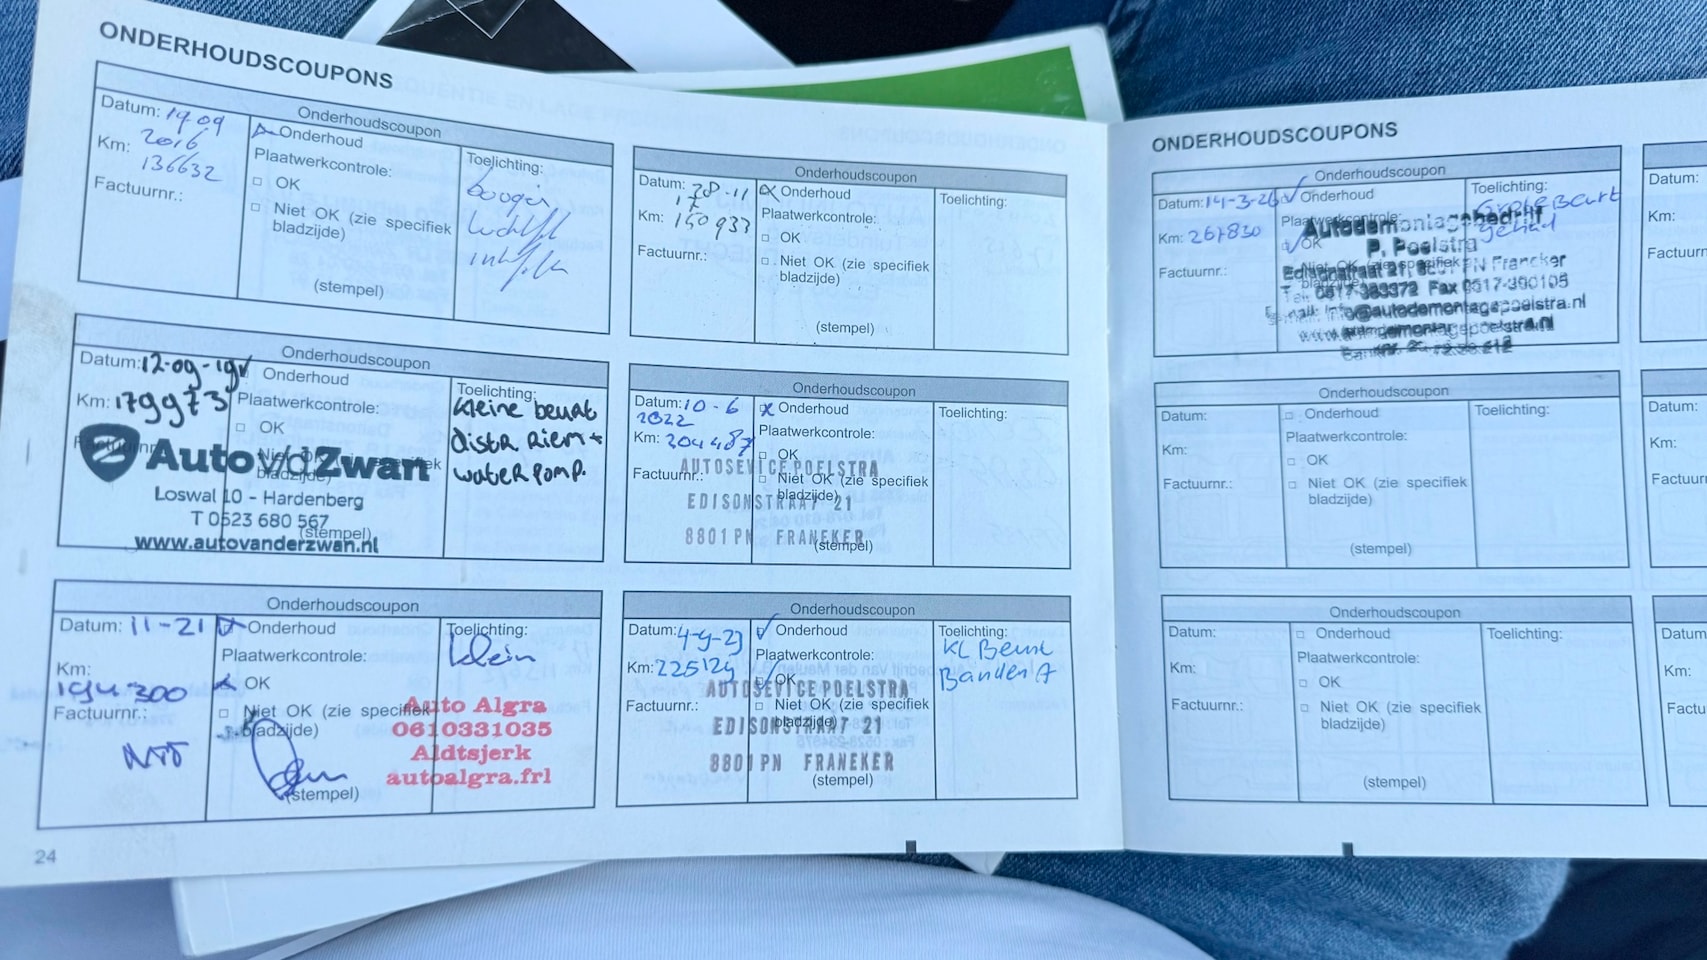 ONDERHOUDSCOUPONS
Onderhoudscoupon
Datum: 19 09
2016
Km: 136632
Factuurnr.:
Onderhoud
Plaatwerkcontrole:
OK
Niet OK (zie specifiek
bladzijde)
(stempel)
Toelichting:
bougie
Onderhoudscoupon
Datum: 28-11
17
Km: 150933
Factuurnr.:
Onderhoud
Plaatwerkcontrole:
OK
Niet OK (zie specifiek
bladzijde)
(stempel)
Toelichting:
Onderhoudscoupon
Datum: 12-09-19
Km: 179973
Factuurnr.:
Onderhoud
Plaatwerkcontrole:
OK
Niet OK (zie specifiek
bladzijde)
(stempel)
AutovdZwan
Loswal 10 - Hardenberg
T 0523 680 567
www.autovanderzwan.nl
Toelichting:
kleine beurt
distr Riem +
waterpomp.
Onderhoudscoupon
Datum: 10-6
2022
Km: 204487
Factuurnr.:
Onderhoud
Plaatwerkcontrole:
OK
Niet OK (zie specifiek
bladzijde)
(stempel)
AUTOSEVICE POELSTRA
EDISONSTRAAT 21
8801 PN FRANEKER
Toelichting:
Onderhoudscoupon
Datum: 11-21
Km:
194300
Factuurnr.:
Onderhoud
Plaatwerkcontrole:
OK
Niet OK (zie specifiek
bladzijde)
(stempel)
Toelichting:
klein
Auto Algra
0610331035
Aldtsjerk
autoalgra.frl
Onderhoudscoupon
Datum: 4-9-23
Km: 225124
Factuurnr.:
Onderhoud
Plaatwerkcontrole:
OK
Niet OK (zie specifiek
bladzijde)
(stempel)
AUTOSEVICE POELSTRA
EDISONSTRAAT 21
8801 PN FRANEKER
Toelichting:
KL Beurt
Banden
24
ONDERHOUDSCOUPONS
Onderhoudscoupon
Datum: 14-3-26
Km: 267830
Factuurnr.:
Onderhoud
Plaatwerkcontrole:
OK
Niet OK (zie specifiek
bladzijde)
Toelichting:
Grote Beurt
gehad
Autodemontagebedrijf
P. Poelstra
Edisonstraat 21, 8801 PN Franeker
Tel. 0517-383372 Fax 0517-390105
E-mail: info@autodemontagepoelstra.nl
Onderhoudscoupon
Datum:
Km:
Factuurnr.:
Onderhoud
Plaatwerkcontrole:
OK
Niet OK (zie specifiek
bladzijde)
(stempel)
Toelichting:
Onderhoudscoupon
Datum:
Km:
Factuurnr.:
Onderhoud
Plaatwerkcontrole:
OK
Niet OK (zie specifiek
bladzijde)
(stempel)
Toelichting:
Datum:
Km:
Factuurnr
Datum:
Km:
Factuur
Datum
Km:
Factu